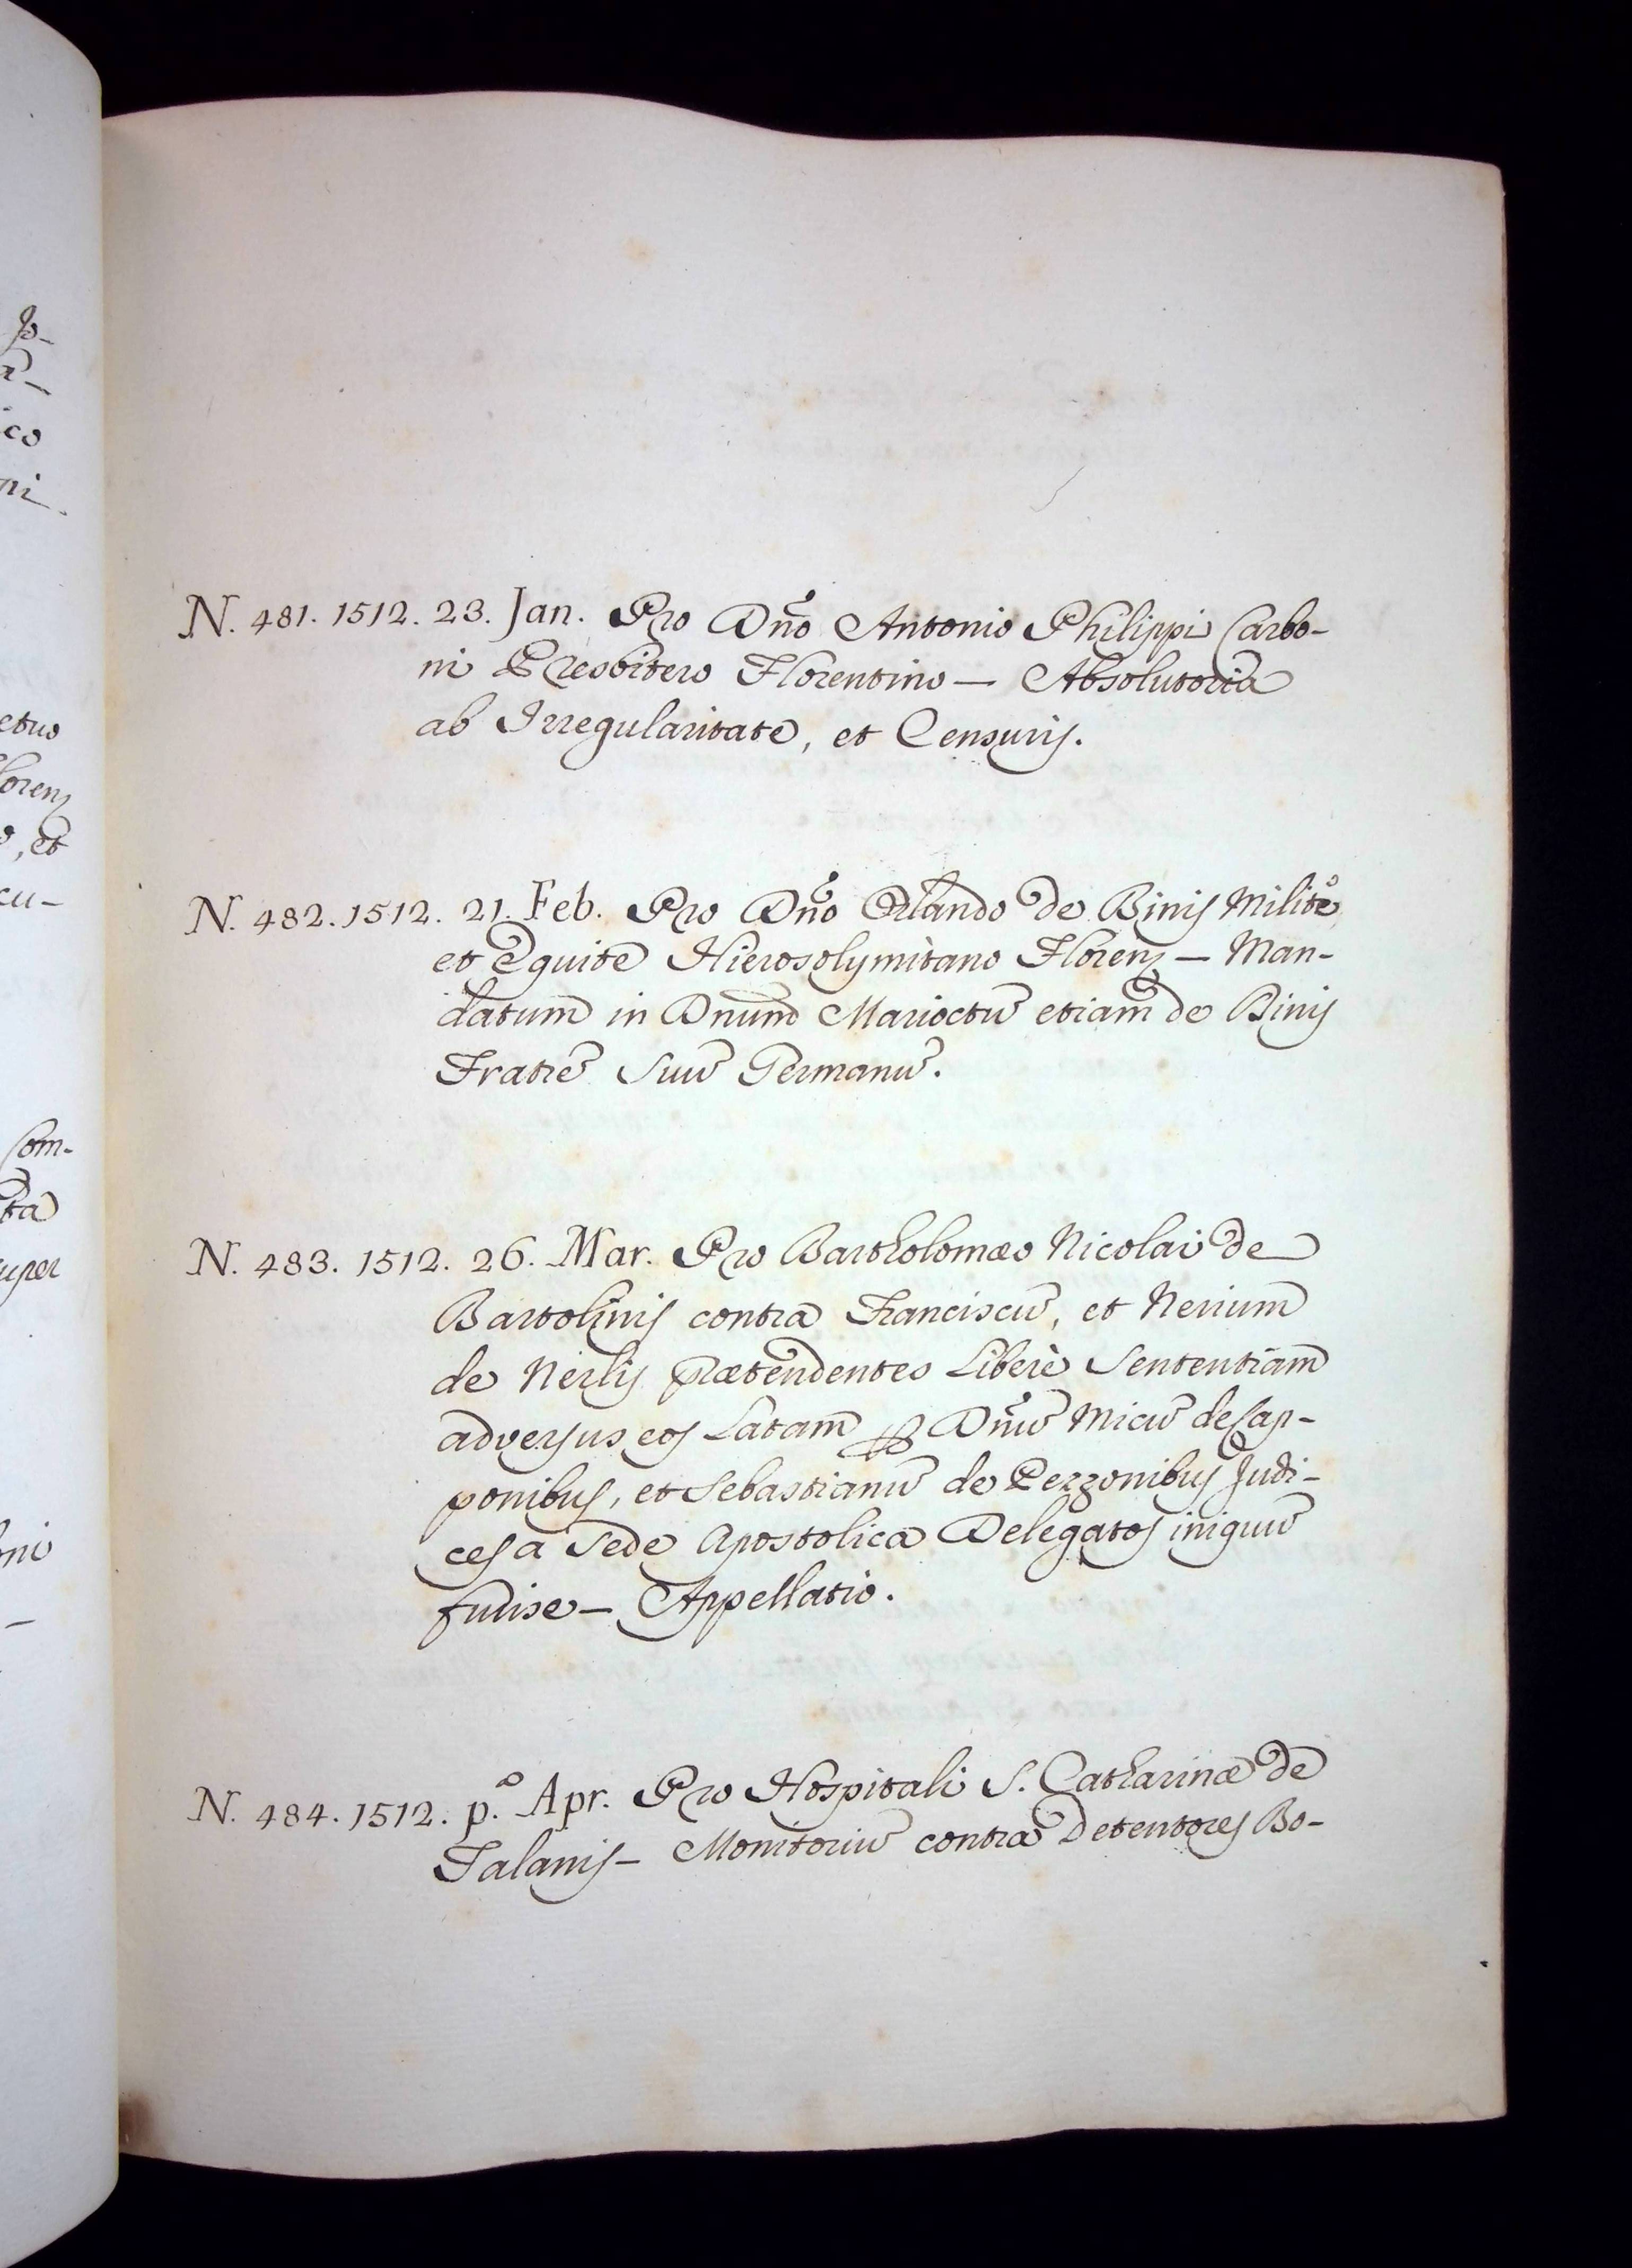 N. 481. 1512. 23. Jan. Pro Dño Antonio Philippi Carbo-
ni Presbitero Florentino — Absolutoria
ab Irregularitate, et Censuris.
N. 482. 1512. 21. Feb. Pro Dño Orlando de Binis Milite
et Equite Hierosolymitano Floren — Man-
datum in Dnum Marioctū etiam de Binis
Fratrē Suū Germanū.
N. 483. 1512. 26. Mar. Pro Bartholomæo Nicolai de
Bartolinis contra Franciscū, et Nerium
de Nerlis prætendentes Liberè Sententiam
adversus eos Latam Dñū Micū de Cap-
ponibus, et Sebastianū de Pezzonibus Judi-
ces a Sede Apostolica Delegatos iniquū
fuiise — Appellatio.
N. 484. 1512. p.º Apr. Pro Hospitali S. Catharinæ de
Talanis — Monitoriū contra Detentores Bo-
Jo-
ico
etus
, et
cu-
Com-
ta
uper